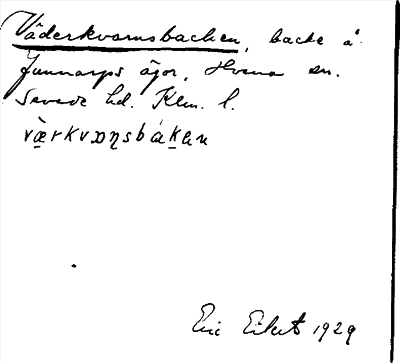 Väderkvarnsbacken, backe å
Gunnarps ägor, Hvena sn.
Sevede hd. Klm. l.
væ̀rkvɔɳsbákan
Eric Eket 1929